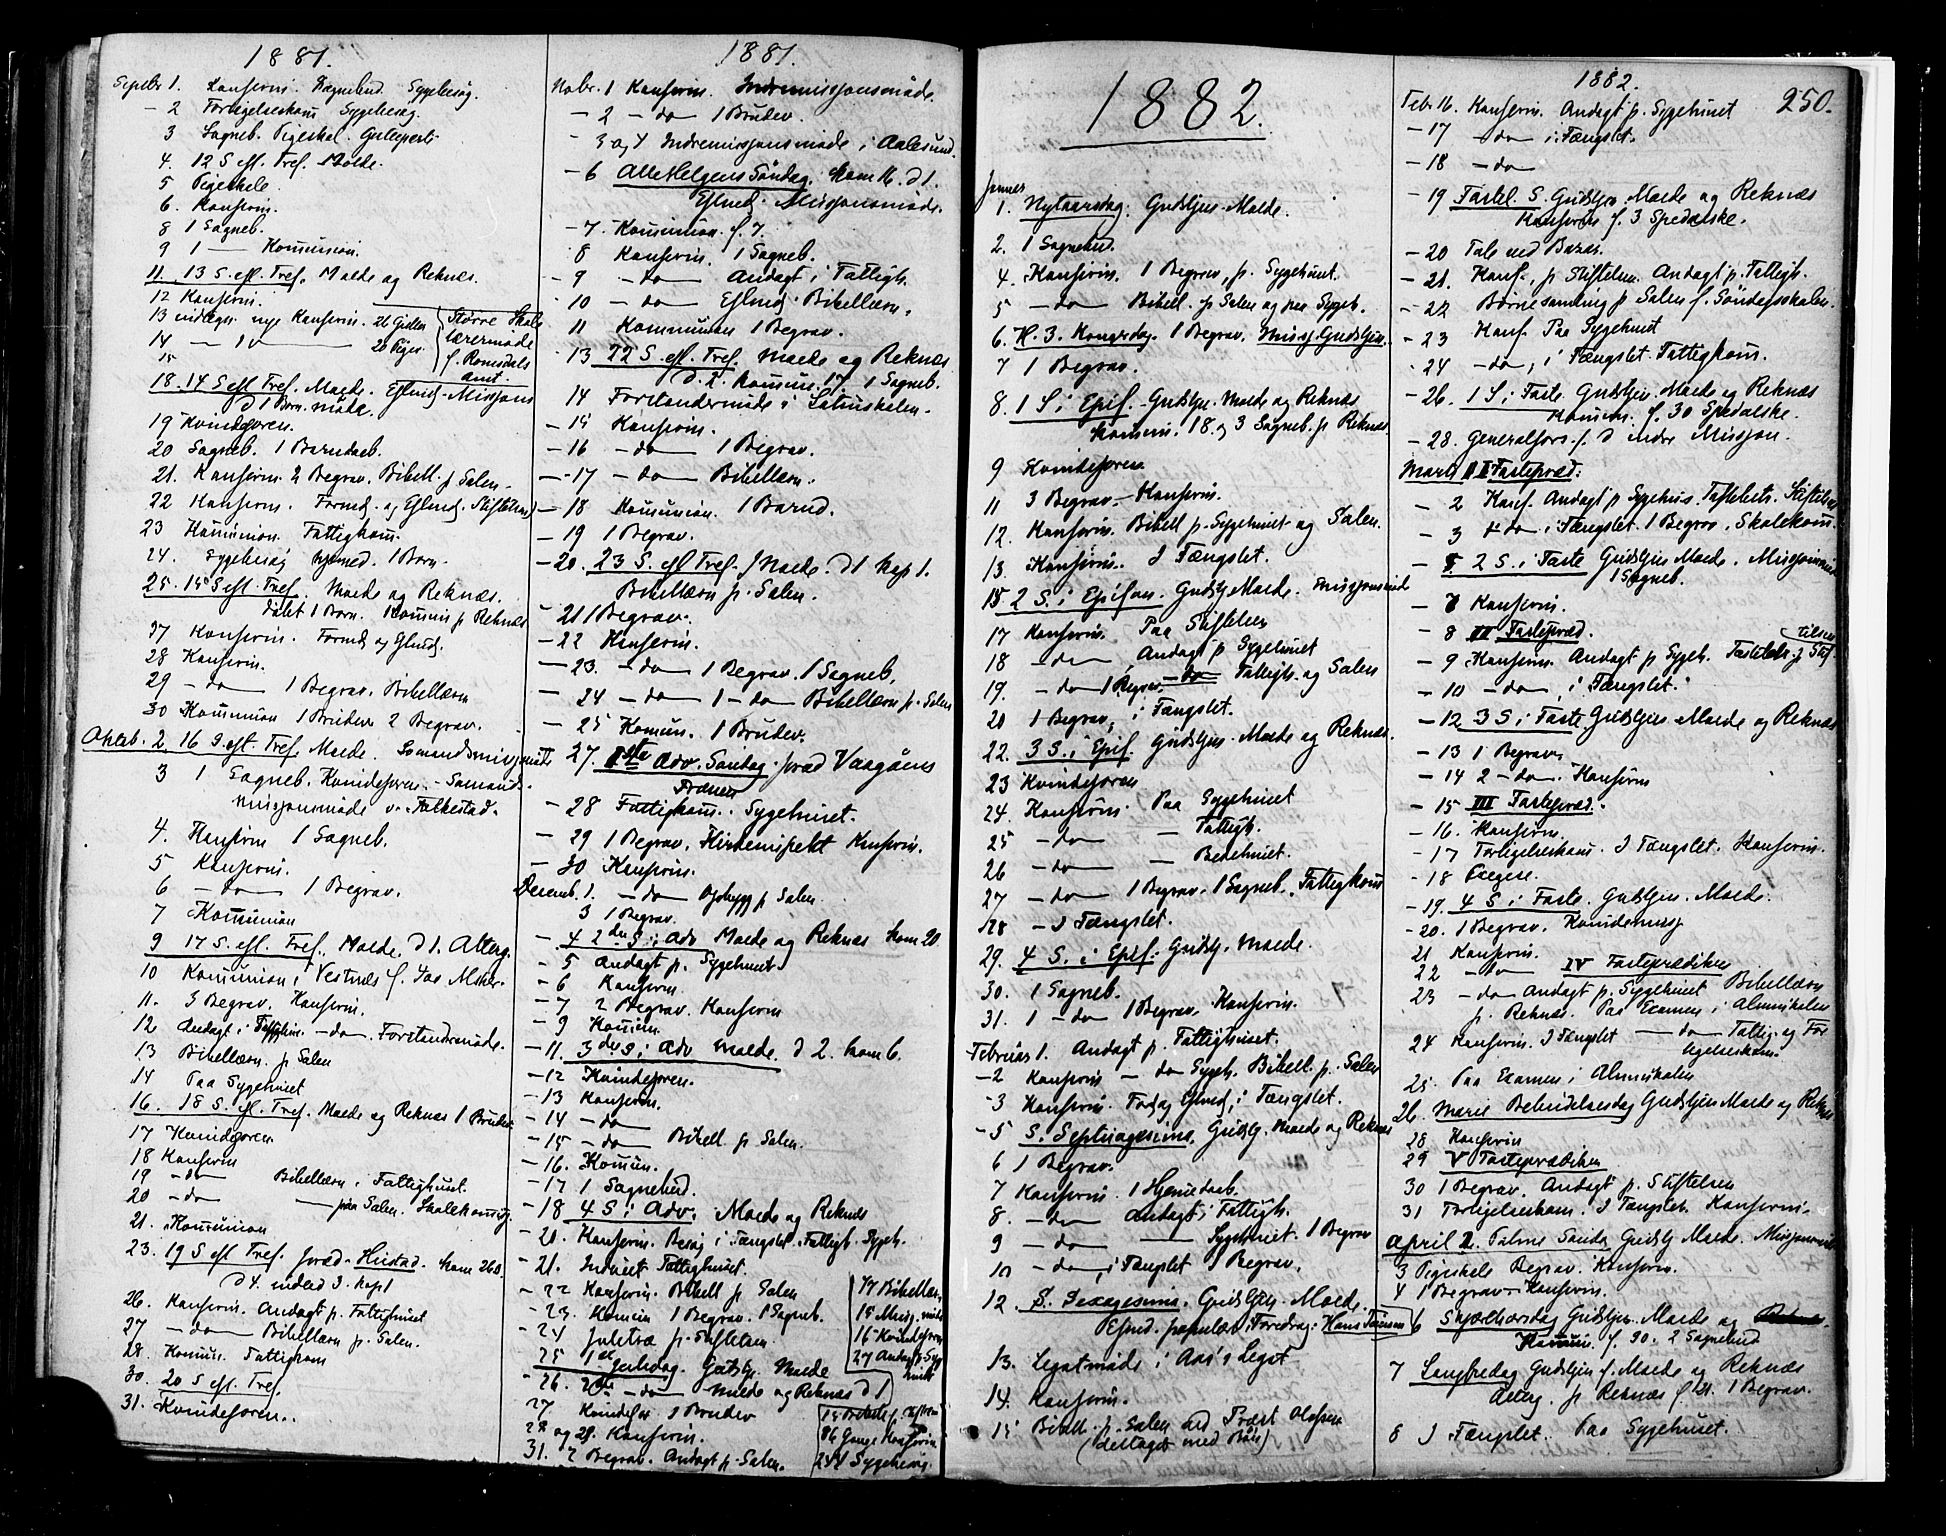 1881.
Septbr 1. Konferm. Sygebesøg.
- 2 Forligelseskom Sygebesøg.
3 Sogneb. Pigeskol.
4. 12 S eft. Tref. Molde.
5 Pigeskole.
6. Konferm.
8 1 Sogneb.
9 1 — Komunion.
11. 13 S. eft. Tref. Molde og Reknæs.
12 Konferm.
13 indlegn. nye Konferm. 26 Større Skole
14 — do — 20 Piger lærermøde
15 f. Romsdals
18. 14 S eft Tref. Molde. Missjons amt.
d 1 Barn. møde.
19 Kvindeforen.
20 Sogneb. 1 Barndaab.
21. Konferm. 2 Begrav. Bibell. p Salen.
22 Konferm. Formd. og Eftmd. Stiftelsen
23 Komunion Fattigkom.
24. Sygebesøg 1 Barn.
25. 15 S eft Tref. Molde og Reknæs.
døbt 1 Barn. Komun p Reknæs
27 Konferm. Formd og Eftmd.
28 Konferm.
29 — do — 1 Begrav. Bibellæsn
30 Komunion 1 Brudev. 2 Begrav.
Oktob. 2. 16 S. eft. Tref. Molde. Sømandsmissjonsmøde
3 1 Sogneb. Kvindeforen. - Sømands
missjonsmøde v. Falkestad.
4. Konferm 1 Sogneb.
5 Konferm.
6 — do — 1 Begrav.
7 Komunion
9 17 S. eft. Tref. Molde. d 1. Alterg.
10 Komunion i Vestnæs f.
11. 3 Begrav. Konferm.
12 Andagt i Fattighus. — do — Forstandermøde.
13 Bibellæsn. p Salen
14 Paa Sygehuset
16. 18 S. eft. Tref. Molde og Reknæs 1 Brudev.
17 Kvindeforen
18 Konferm
19 — do — Bibellæsn i Fattighuset.
20 — do — — paa Salen. Skolekomm.
21. Komunion
23. 19 S eft Tref. præd. Hustad. kom 260.
26. Konferm. Andagt p. Fattighuset
27 — do — Bibellæsn p. Salen.
28. Komun. Fattigkom
30. 20 S eft Tref.
31. Kvindeforen.
1881.
Novbr. 1 Konferm. Indremissjonsmøde.
- 2 — do — 1 Brudev.
- 3 og 4 Indremissjonsmøde i Aalesund.
- 6 Allehelgens Søndag. kom 16. d 1.
Eftmd. Missjonsmøde.
- 7. Komunion f. 7.
- 8 Konferm. 1 Sogneb.
- 9 — do — Andagt i Fattigh.
10 — do — Eftmd. Bibellæsn.
11 Kommunion 1 Begrav.
- 13 22 S. eft. Tref. Molde og Reknæs
d. 2. Komun. 17. 1 Sogneb.
14 Forstandermøde i Latinskolen.
- 15 Konferm.
- 16 — do — 1 Begrav.
- 17 — do — Bibellæsn.
- 18 Komunion. 1 Barnd.
- 19 1 Begrav.
- 20. 23 S. eft Tref. Molde. d 1
Bibellæsn p. Salen.
- 21 1 Begrav.
- 22 Konferm.
- 23. — do — 1 Begrav. 1 Sogneb.
- 24 — do — 1 — do — Bibellæsn p. Salen
- 25 Komun. 1 Brudev.
27. 1ste Adv. Søndag. præd Vaagøens
Frænen
- 28 Fattigkom. Sygehuset.
- 29 1 Begrav. Kirkeinspekt Konferm.
- 30 Konferm.
Decemb. 1. — do — Opbygg p Salen
3 1 Begrav.
- 4 2den S. i Adv Molde og Reknæs kom 20
- 5 Andagt p. Sygehuset
- 6 Konferm
- 7 2 Begrav. Konferm
- 9 Komun.
- 11. 3die S. i Adv Molde. d 2. kom 6.
- 12 Kvindeforen.
- 13 Konferm.
- 14 — do —
- 15 — do — Bibell. p Salen.
- 16. Komun.
- 17 1 Sognebud.
- 18 4 S i Adv. Molde og Reknæs
- 20. Konferm. Besøg i Fængslet. Fattigh. Sygeh.
- 21. Indviet Fattighuset.
- 22 Konferm. Bibell p Salen 77 Bibellæsn
- 23 Komun 1 Begrav. 1 Sogneb. 15 Miss. møde
- 24 Juletræ p. Stiftelsen 16 Kvindeforen
- 25 1ste Juledag. Gudstj. Molde 27 Andagt p. Syge
- 26. 2den — do — Molde og Reknæs d 1 huset
- 27 Kvindefor 1 Brudev
- 28 og 29. Konferm. 86 Gange Konferm
- 31. 2 Begrav. Andagt p. Salen. 244 Sygebesøg
1882.
Januar
1. Nytaarsdag. Gudstjen. Molde.
2. 1 Sognebud.
4. Konferm. 1 Begrav. p. Sygehuset.
5 — do — Bibell. p Salen og paa Sygeh.
6. H. 3. Kongersdag. 1 Begrav. Missj. Gudstjen.
7 1 Begrav.
8. 1 S. i Epif. Gudstjen. Molde og Reknæs
Komun. 18. og 3 Sogneb. p Reknæs.
9 Kvindeforen
11 3 Begrav. - Konferm.
12. Konferm. Bibell p. Sygehuset og Salen.
13. Konferm. I Fængslet.
15. 2 S. i Epifan. Gudstj. Molde. Missjonsmød
17 Konferm. Paa Stiftelsen
18 — do — Andagt p Sygehuset
19. — do — 1 Begrav. — do — Fattigh. og Salen
20 1 Begrav, i Fængslet.
22. 3 S. i Epif. Gudstjen. Molde og Reknæs.
23 Kvindeforen
24. Konferm. Paa Sygehuset
25 — do — — Fattigh.
26 — do — — Bedehuset.
27 — do — 1 Begrav. 1 Sogneb. Fattigkom
28 — I Fængslet.
29. 4 S. i Epif. Gudstj. Molde.
30. 1 Sogneb.
31. 1 — do — 1 Begrav. Konferm.
Februar 1. Andagt p. Fattighuset.
- 2 Konferm — do Sygeh. Bibell. p. Salen
- 3 Konferm. For og Eftmd, i Fængslet.
- 5 S. Septuagesima. Gudstj. Molde og Reknæs
6 1 Begrav.
7 Konferm. 1 Hjemedaab.
8. — do — Andagt i Fattigh.
9 — do — — Sygehuset. 1 Begrav
10 — do —, i Fængslet 1 Begrav.
12 S. Sexagesima. Gudstjen. Molde.
Eftmd. populær Foredrag: Hans Tausen
13. Legatmøde i Aas's Leget
14. Konferm.
15 Bibell. p. Salen ved Præst Olafsen
(deltaget med Bøn)
1882.
250.
Febr 16. Konferm. Andagt p. Sygehuset
- 17 — do — i Fængslet.
- 18 — do
- 19 Fastel. S. Gudstjen. Molde og Reknæs
Komun f. 3 Spedalske.
- 20 Tale ved Bazar.
- 21. Konf., p Stiftelsen. Andagt p. Fattigh.
- 22 Børnesamling p Salen f. Søndagsskolen.
- 23 Konf. Paa Sygehuset
- 24 — do —, i Fængslet. Fattigkom.
- 26. 1 S. i Faste Gudstjen. Molde og Reknæs
Komun. f. 30 Spedalske.
- 28. Generalfors. f. d indre Missjon.
Marts 1 I Fastepræd.
- 2 Konf. Andagt p Sygehus Fastelektr. Stiftelsen
- 3 — do — i Fængslet. 1 Begrav. Skolekom.
- 5 2 S. i Faste Gudstjen Molde. Missjonsmød
1 Sogneb.
- 7 Konferm.
- 8 II Fastepræd.
- 9 Konferm. Andagt p Sygeh. Fastelek. p Stif
telsen
- 10 — do —, i Fængslet.
- 12 3 S. i Faste Gudstjen. Molde og Reknæs
- 13 1 Begrav
- 14 2 — do. Konferm
- 15 III Fastepræd.
- 16. Konferm.
- 17 Forligelseskom. I Fængslet. Konferm.
- 18 Exegese.
- 19. 4 S. i Faste. Gudstjen. Molde.
- 20. 1 Begrav. Kvindemissj
21 Konferm.
22 — do — IV Fasteprædiken
23 — do — Andagt p. Sygehuset Bibellæsn
p. Reknæs. Paa Examen i Almuskolen
24 Konferm. I Fængslet — do — Fattig og For
ligelseskom.
25. Paa Examen i Almuskolen
26. Marie Bebudelsesdag Gudstjen Molde og Reknæs
28 Konferm
29 V Fasteprædiken
30 1 Begrav. Andagt p. Stiftelsen
31 Forligelseskom. I Fængslet. Konferm.
April 2. Palme Sønda Gudstj. Molde. Missjonsmød
3 Pigeskole Begrav. Konferm.
4 1 Begrav Konferm.
6 Skjærthorsdag Gudstjen. Molde og
Komun. f. 90. 2 Sognebud
7 Langfredag Gudstjen f. Molde og Reknæs
Alterg. p Reknæs f 21. 1 Begrav.
8 I Fængslet. Paa Sygehuset.